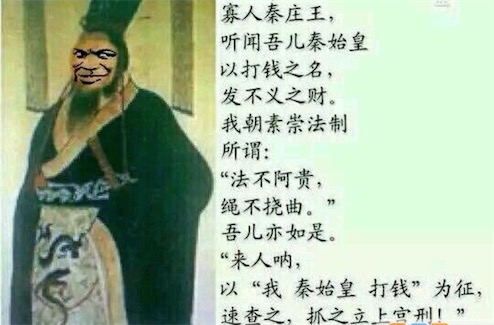 寡人秦庄王，
听闻吾儿秦始皇
以打钱之名，
发不义之财。
我朝素崇法制
所谓：
“法不阿贵，
绳不挠曲。”
吾儿亦如是。
“来人呐，
以“我 秦始皇 打钱”为征，
速查之，抓之立上宫刑！”